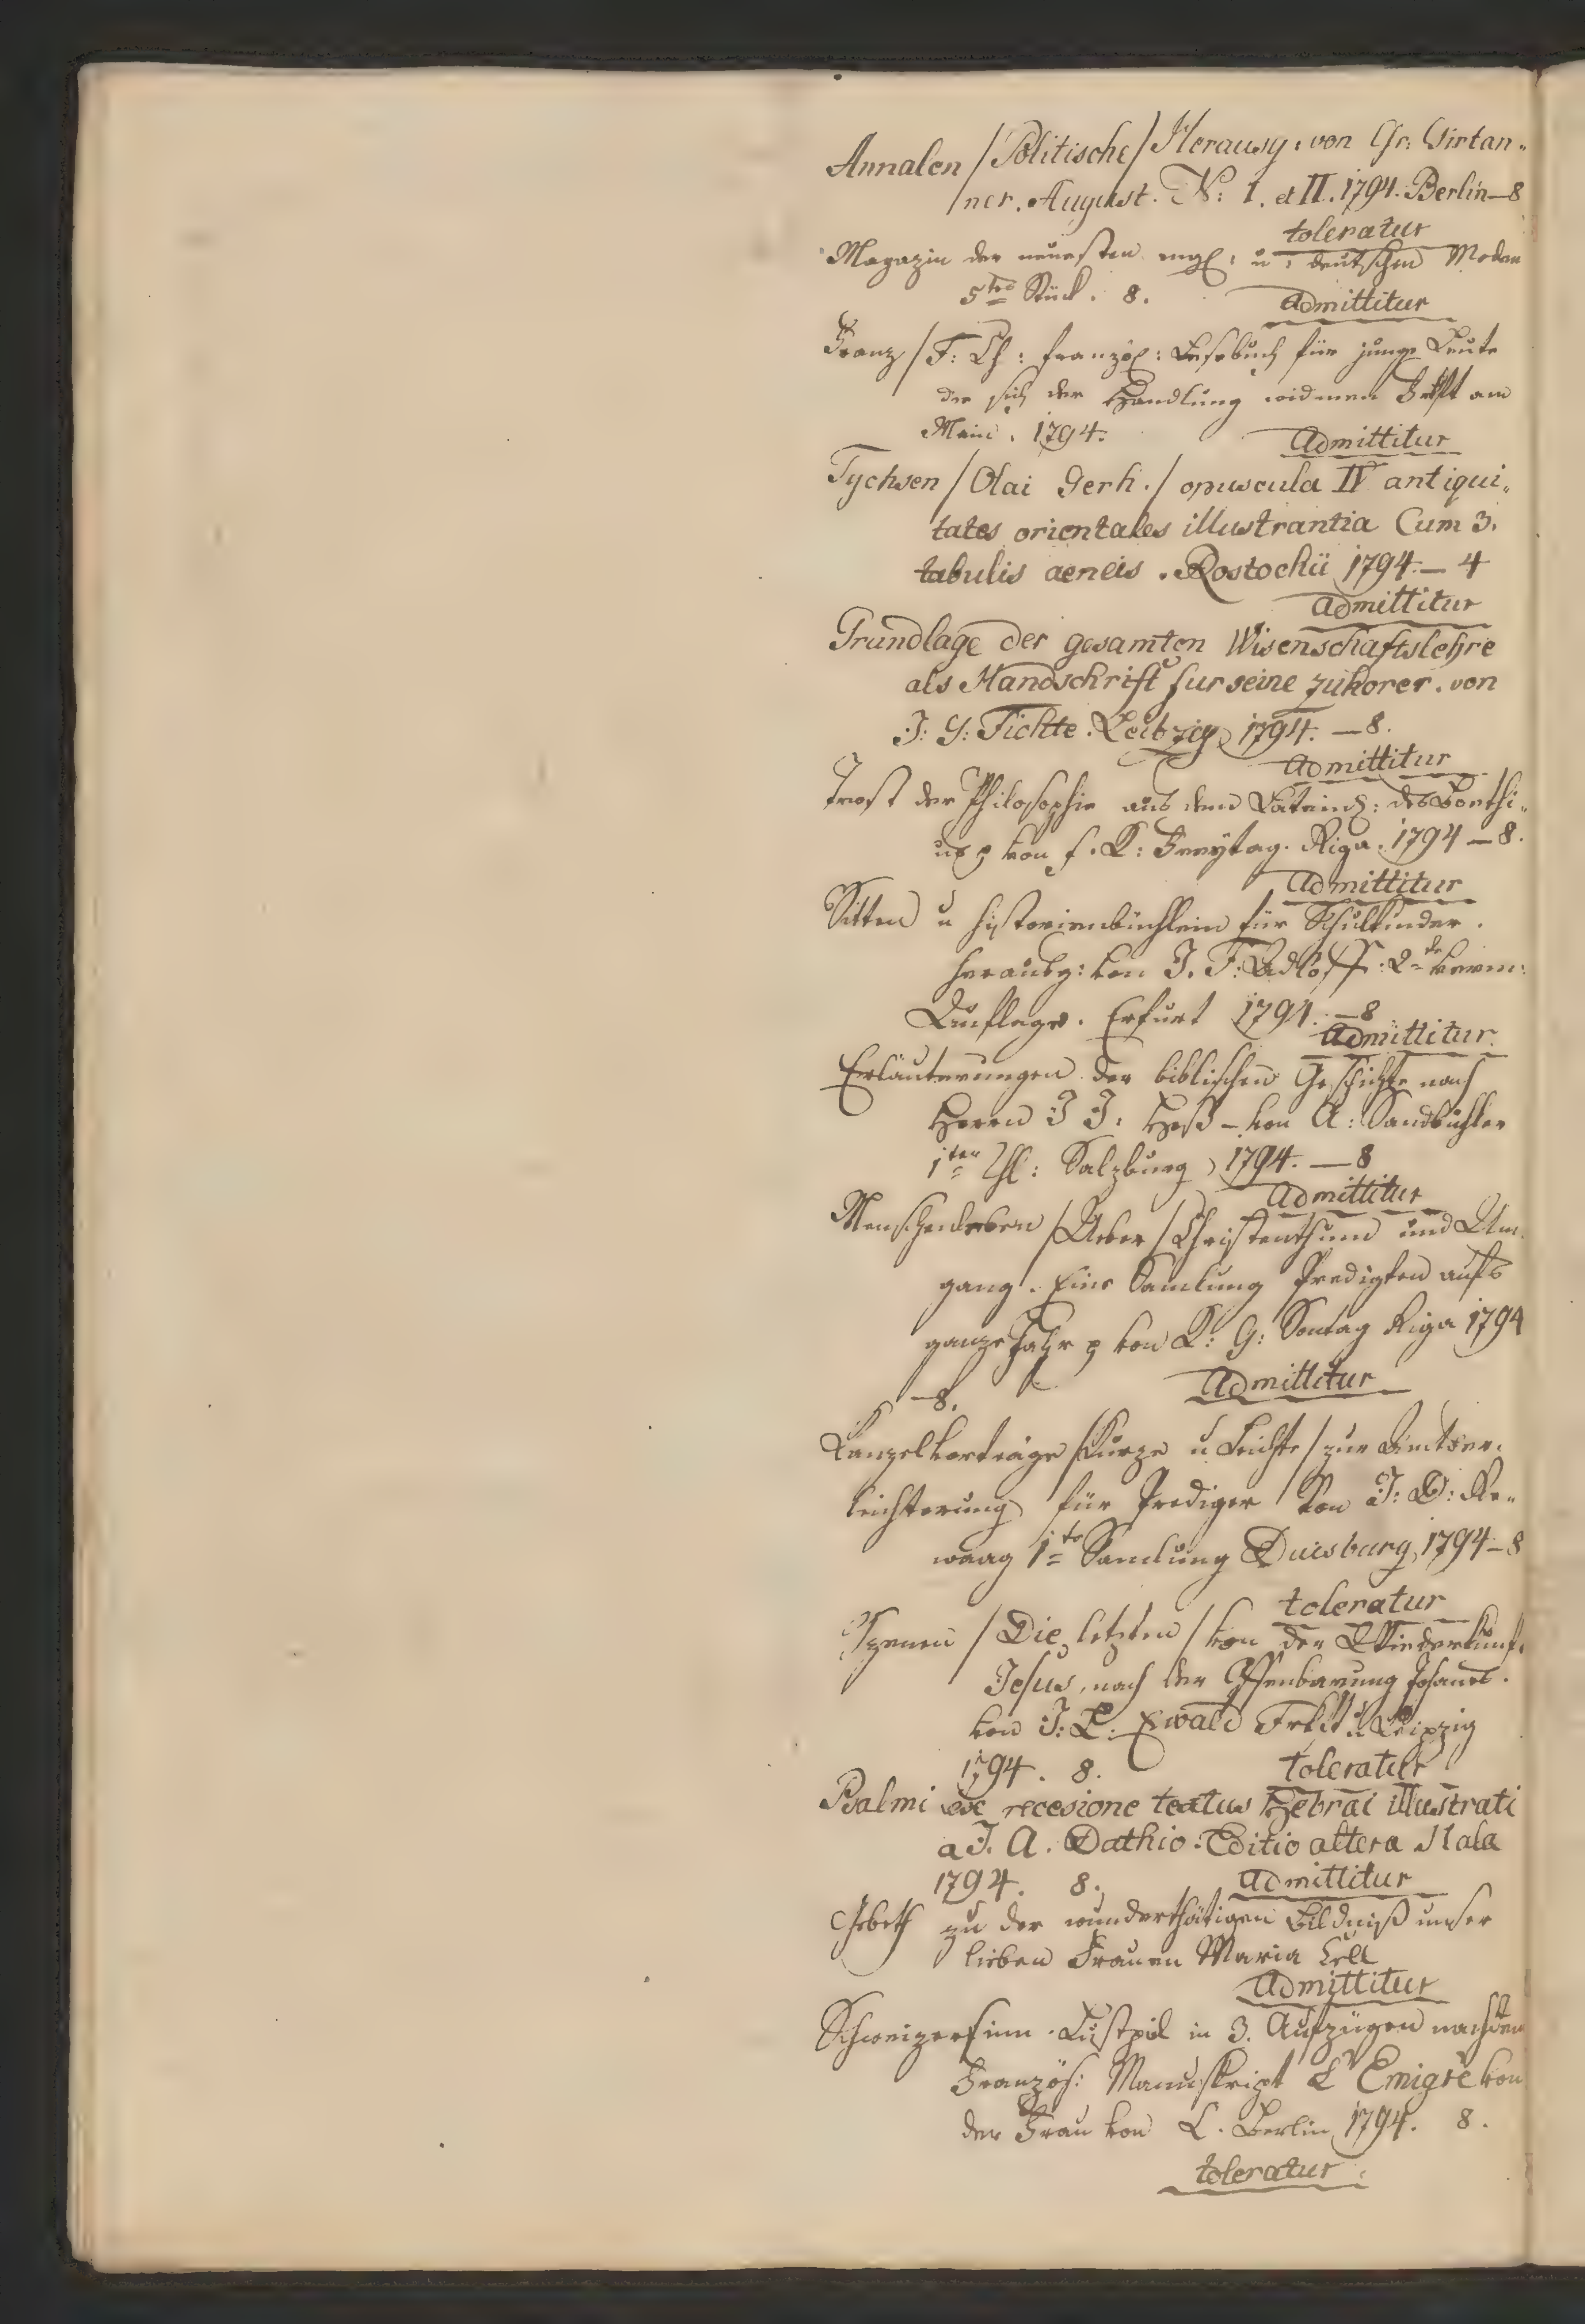 Annalen /Politische/ Herausg: von Chr: Girtan„
ner. August. N: I. et II. 1794. Berlin — 8
toleratur
Magazin der neuesten engl: u: deutschen Moden
5tes Stück. 8.
admittitur
Franz / F: Ch: französ: Lesebuch für junge Leute
die sich der Handlung widmen Frkft am
Main. 1794.
Admittitur
Tychsen /Olai Gerh./ opuscula IV antiqui„
tates orientales illustrantia Cum 3.
tabulis aeneis. Rostochii 1794. — 4
admittitur
Grundlage der gesamten Wisenschaftslehre
als Handschrift fur seine zuhorer. von
J: G: Fichte. Leibzig 1794. — 8.
admittitur
Trost der Philosophie aus dem Latein: des Boethi„
us von f. K: Freytag. Riga. 1794 — 8.
admittitur
Sitten u historienbüchlein für Schulkinder.
herausg: von J. F: Adloff: 2te verm:
Auflage. Erfurt 1794. — 8
admittitur.
Erläuterungen der biblischen Geschichte nach
Herrn J J: Heß — von A: Sandbichler
1ter Thl: Salzburg 1794. — 8
admittitur
Menschenleben /Ueber/ Christenthum und Um
gang. Eine Samlung Predigten aufs
ganze Jahr von K: G: Sontag Riga 1794
— 8.
Admittitur
Kanzelvorträge /Kurze u Leichte/ zur Amtser„
leichterung für Prediger von J: D: Re„
waag 1te Samlung Duisburg 1794 — 8
toleratur
Szenen /Die letzten/ von der Wiederkunft
Jesus, nach der Offenbarung Johanes.
von J: L: Ewald Frkft u Leipzig
1794. 8.
toleratur
Psalmi ex recesione textus Hebrai illustrati
a J. A. Dathio. Editio altera Hala
1794. 8.
admittitur
Gebeth zu der wunderthätigen Bildniß unser
lieben Frauen Maria Zell
admittitur
Schweizersinn. Lustspiel in 3. Aufzügen nach dem
Französ: Manuskript L'Emigré von
der Frau von L. Berlin 1794. 8.
toleratur.